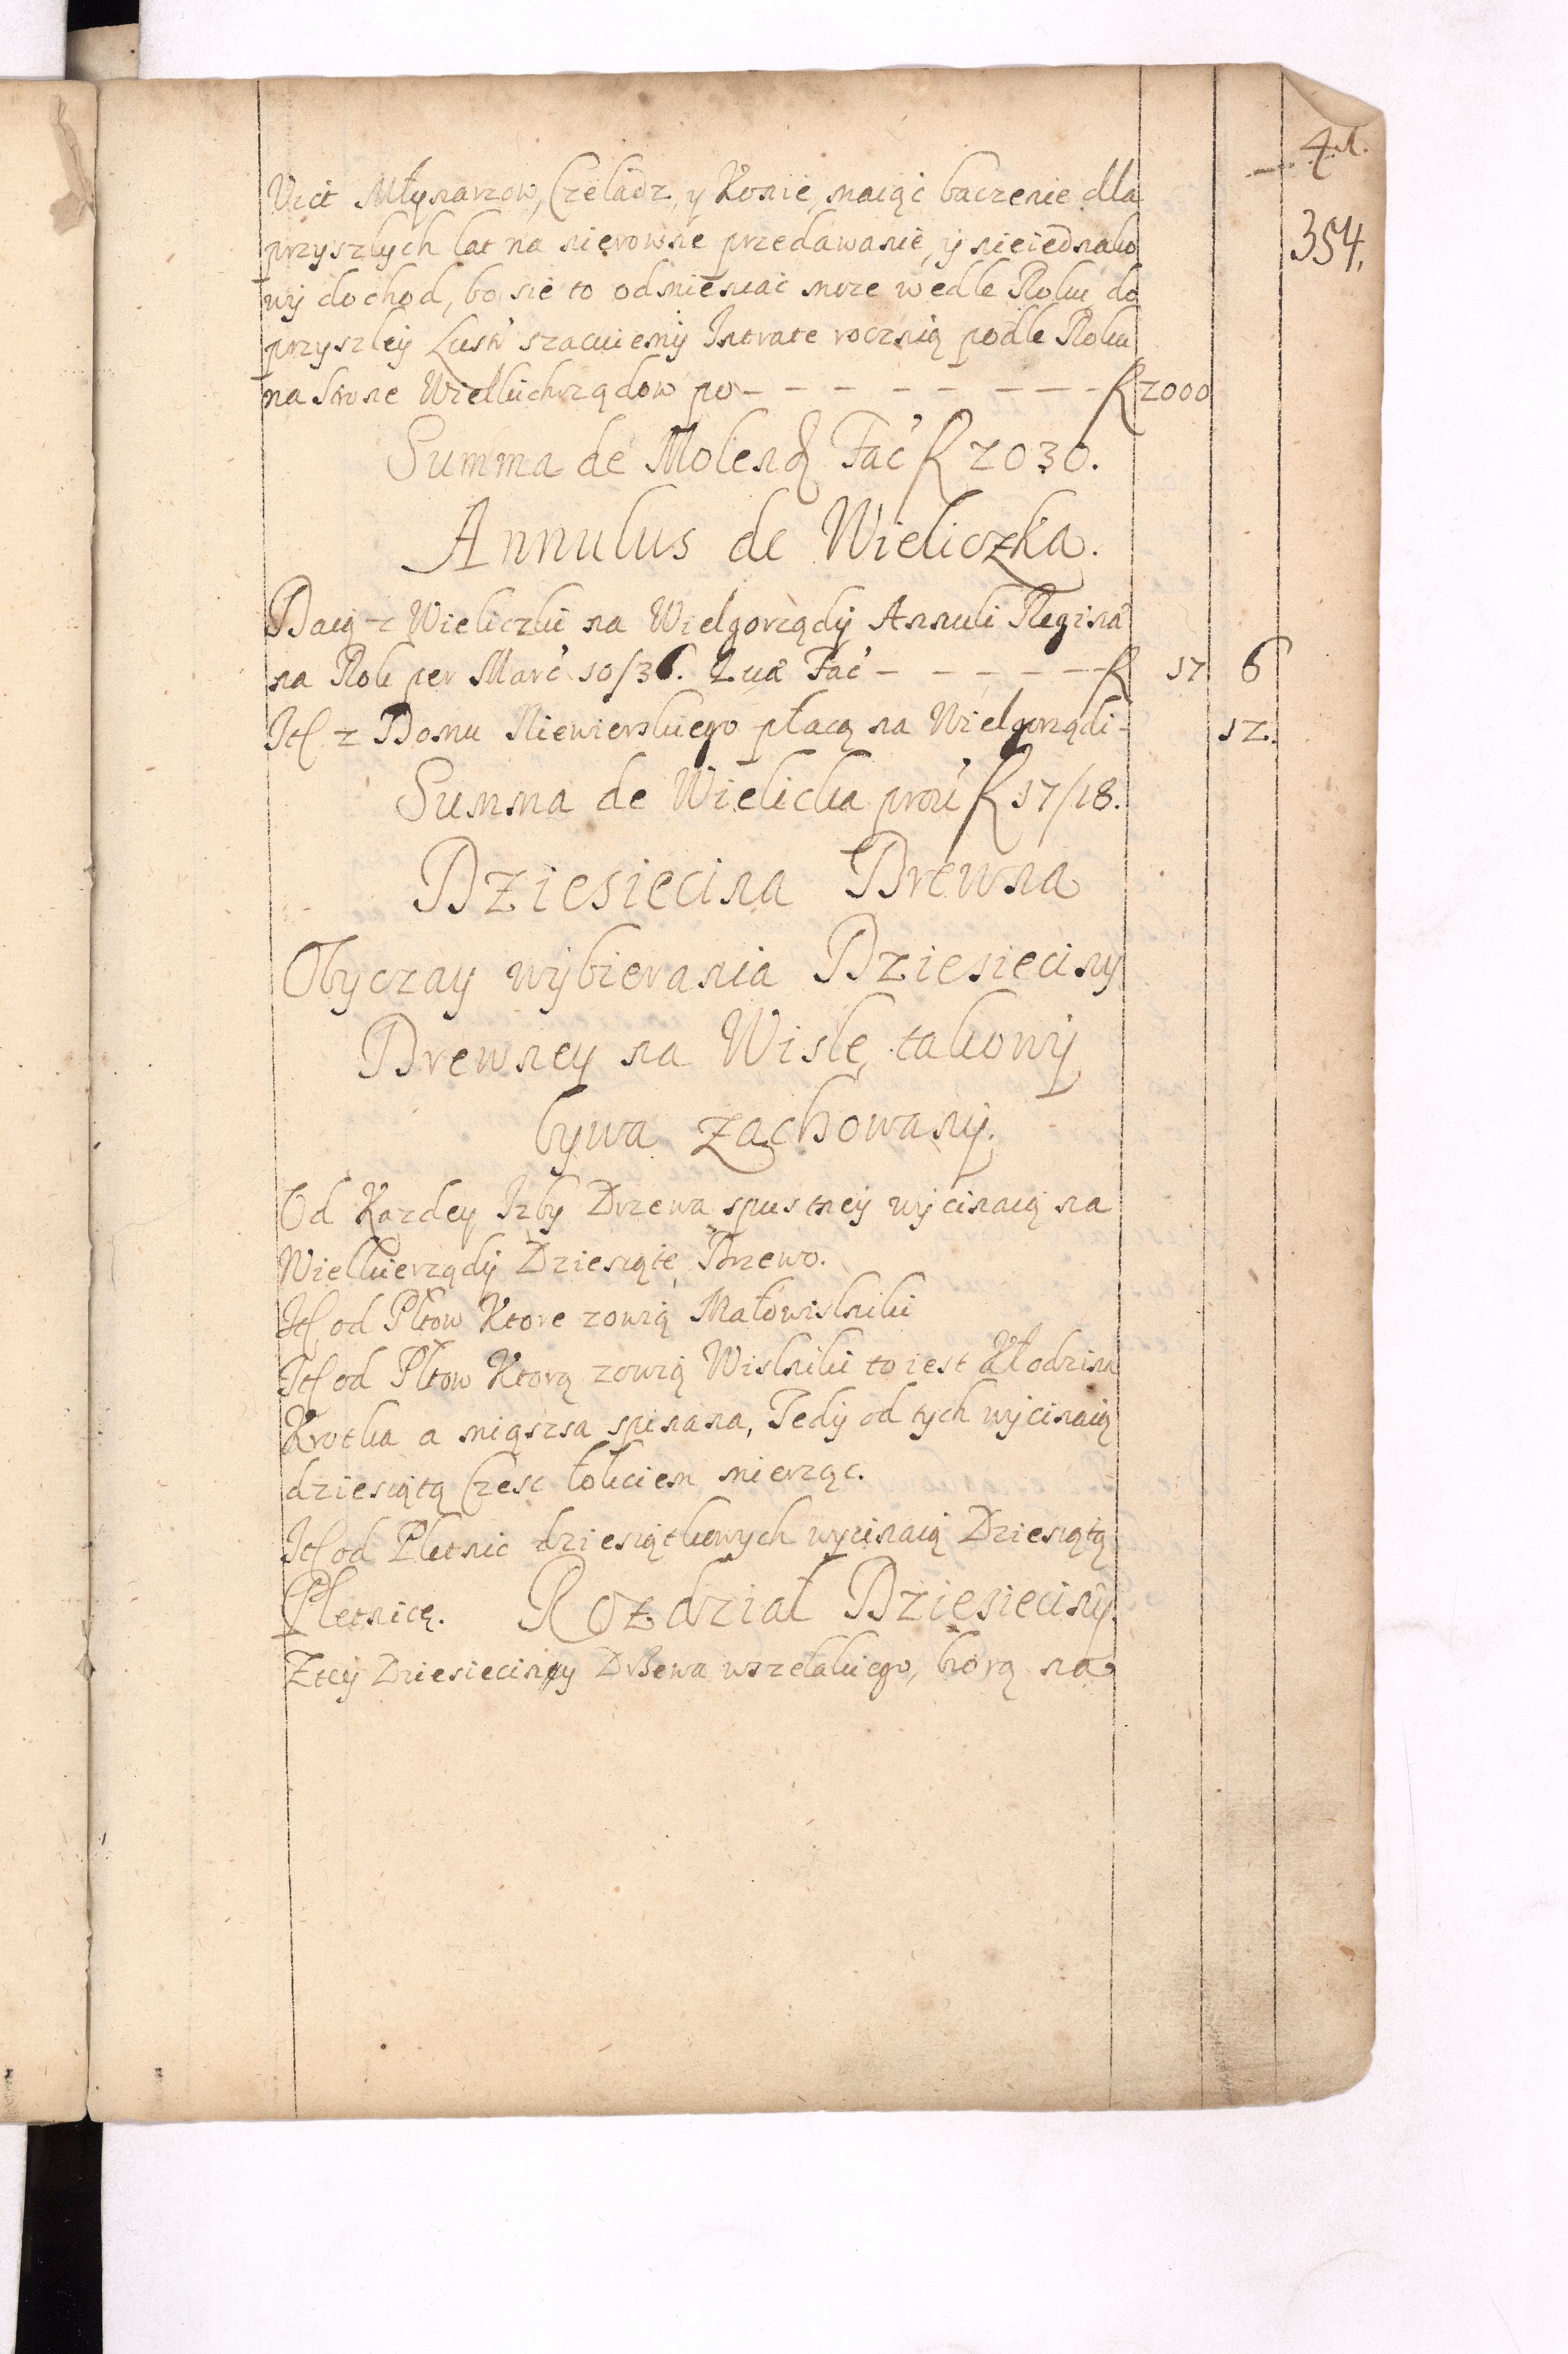 41.
354.
Vict Młynarzow, Czeladz, y Konie, maiąc baczenie dla
przyszłych lat na nierowne przedawanie, y nieiednako
wy dochod, bo sie to odmieniac moze wedle Roku do
przyszley Lustr szacuiemy Intrate roczną podle Roku
na strone Wielkichrządow po — — — — — — — f 2000
Summa de Molend Fac f 2030.
Annulus de Wieliczka.
Daią z Wieliczki na Wielgorządy Annuli Regina
na Rok per Marc 10/36. Quae Fac — — — — — f 17 6
It z Domu Niewierskiego płacą na Wielgorządi - 12.
Summa de Wielicka prou f 17/18.
Dziesiecina Drewna
Obyczay wybierania Dziesieciny
Drewney na Wisle, takowy
bywa zachowany.
Od Kazdey Izby Drzewa spustney wycinaią na
Wielkierządy Dziesiąte Drzewo.
It od Płtow Ktore zowią Małowislniki
It od Pltow Ktorą zowią Wislniki to iest Kłodzina
Krotka a miąszsa spinana, Tedy od tych wycinaią
dziesiątą Czesc łokciem mierząc.
It od Pletnic dziesiątkowych wycinaią Dziesiątą
Pletnicę. Rozdział Dziesieciny.
Ztey Dziesieciny Drzewa wszelakiego, biorą na